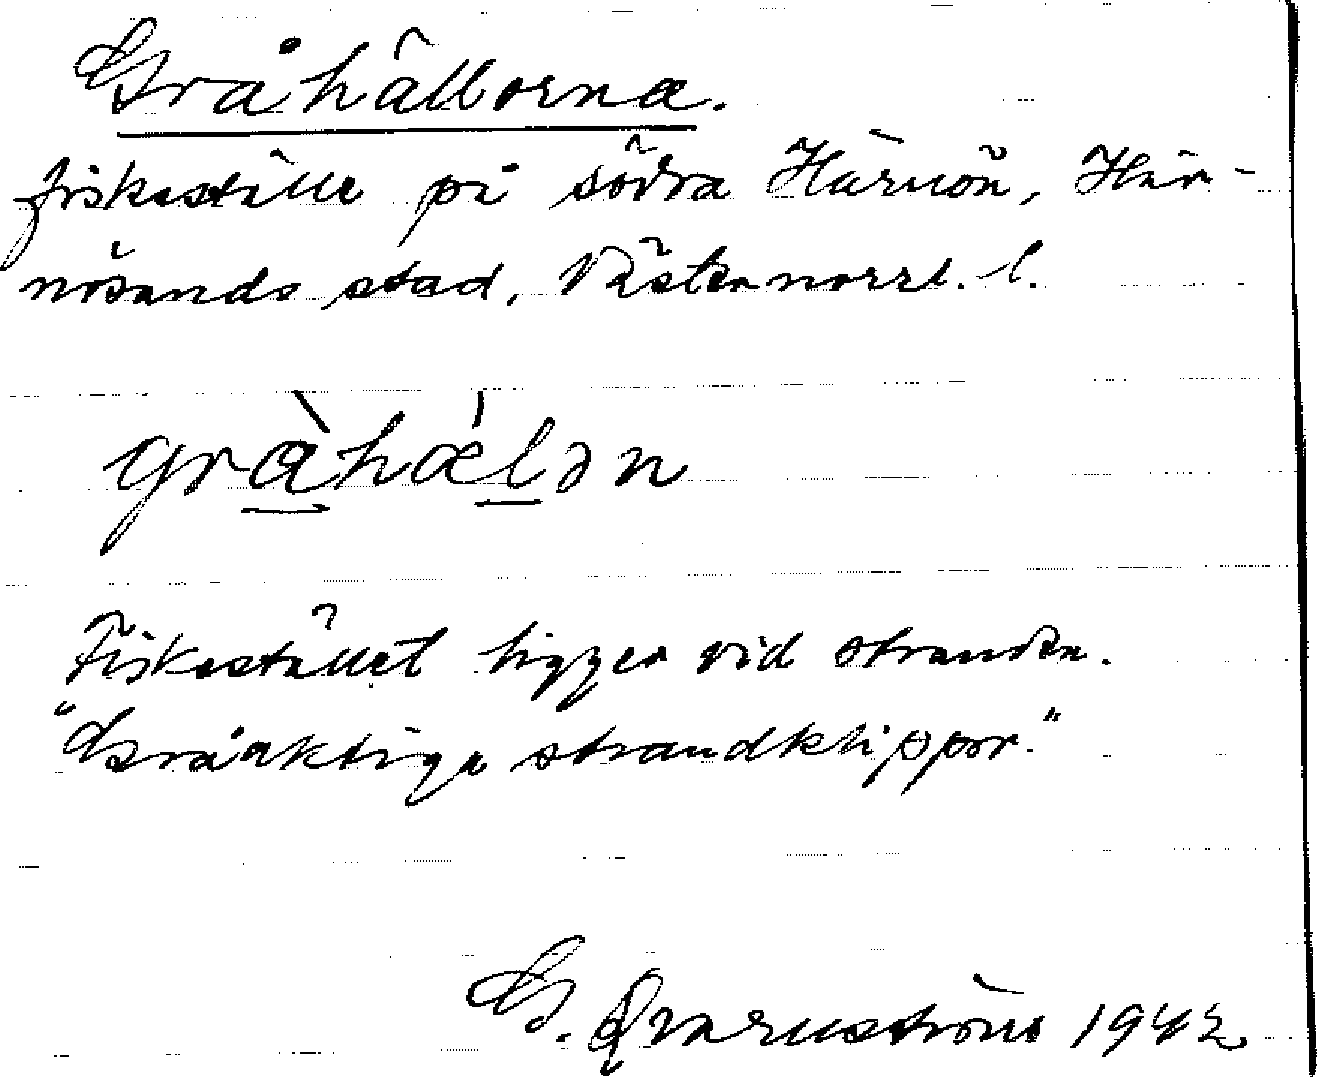 Gråhällorna.
fiskeställe på södra Härnön, Här-
nösands stad, Västernorrl. l.
gràhǽlən
Fiskestället ligger vid stranden.
"Gråaktiga strandklippor."
G. Qvarnström 1942